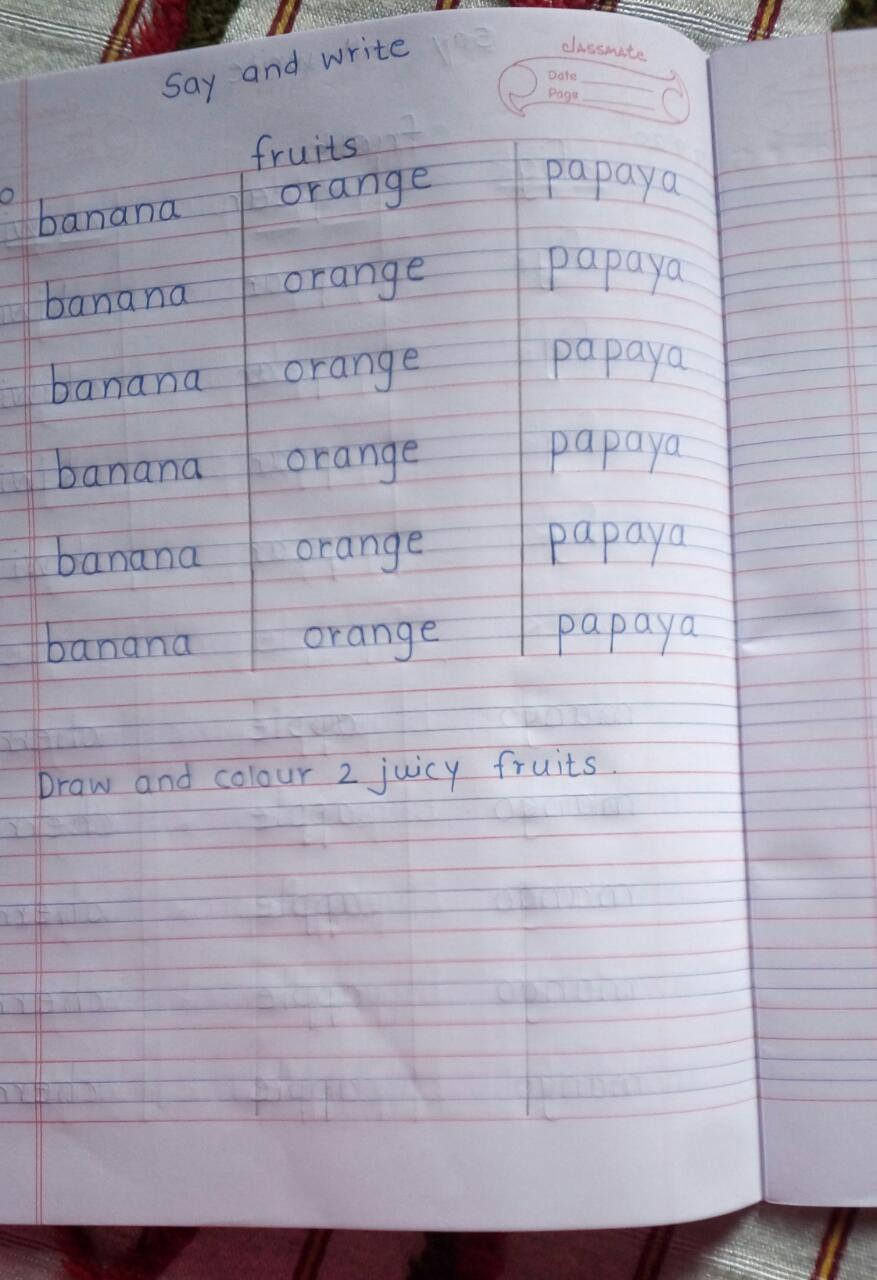 Say and write
classmate
Date
Page
fruits
banana orange papaya
banana orange papaya
banana orange papaya
banana orange papaya
banana orange papaya
banana orange papaya
Draw and colour 2 juicy fruits.